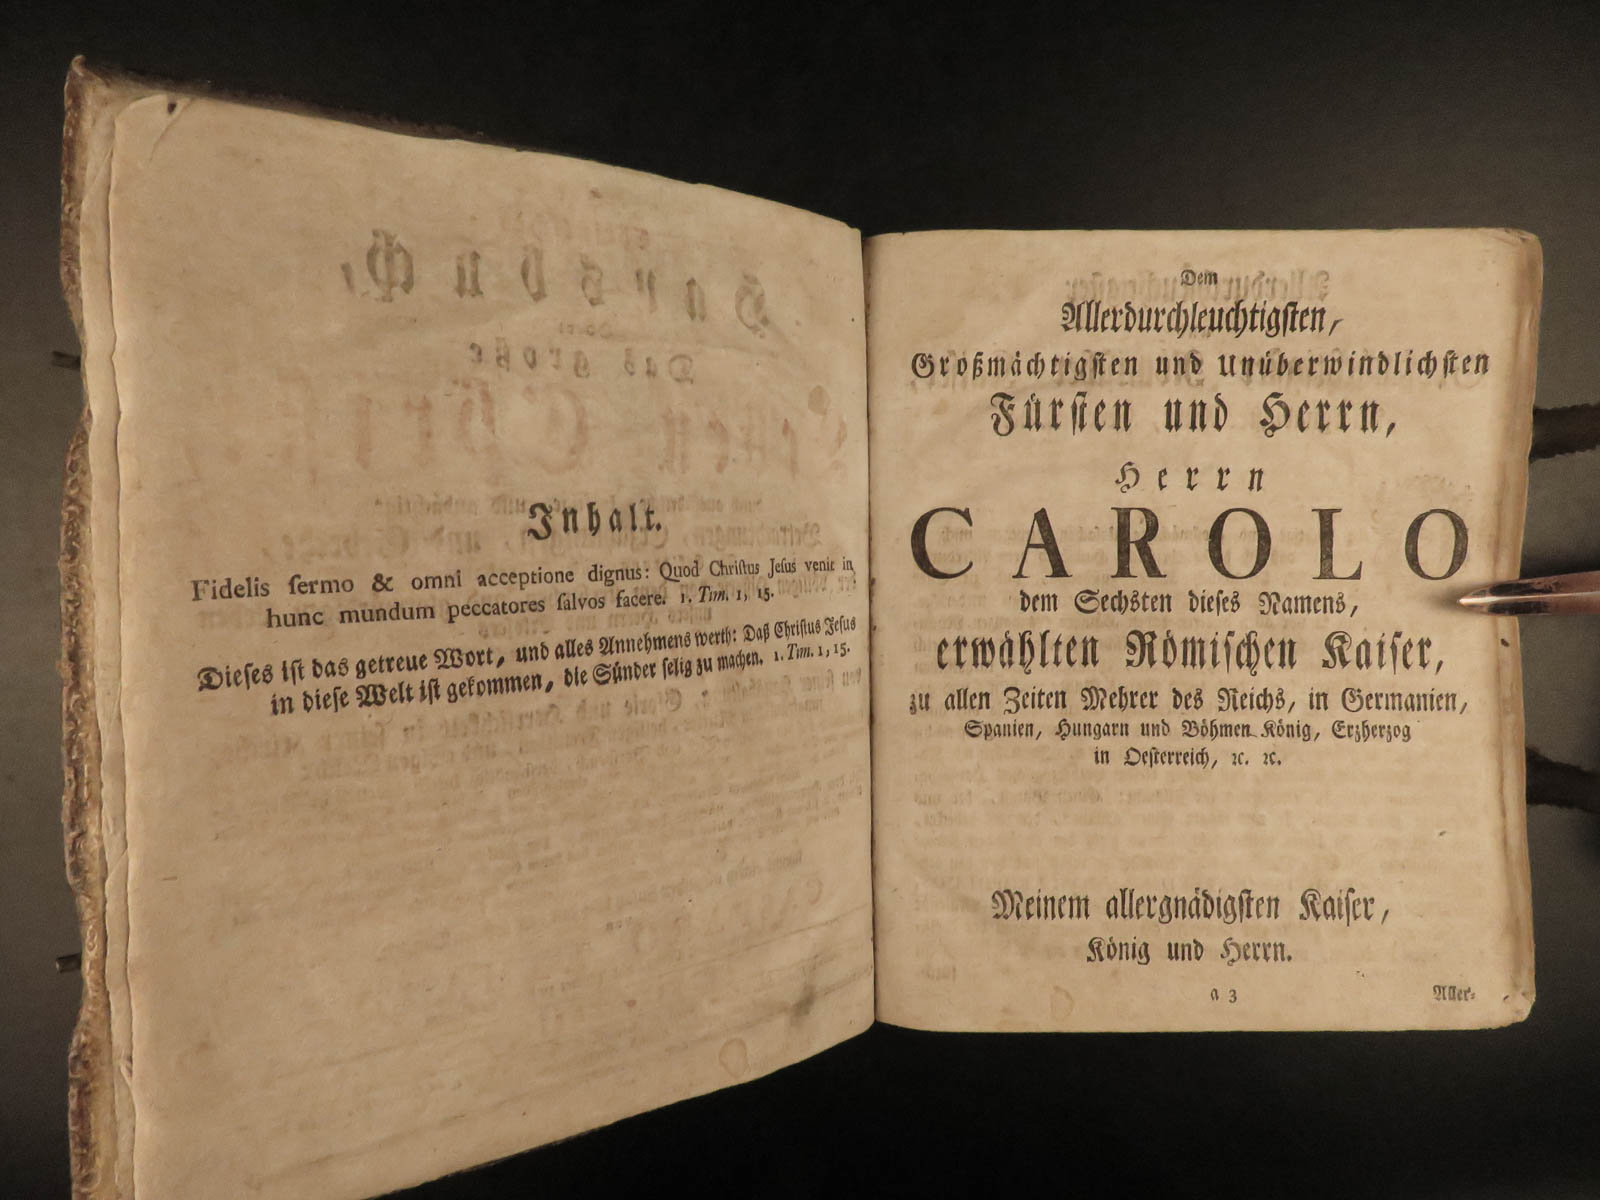 Inhalt.
Fidelis ſermo & omni acceptione dignus: Quod Chriſtus Jeſus venit in
hunc mundum peccatores ſalvos facere. 1. Tim. 1, 15.
Dieſes iſt das getreue Wort, und alles Annehmens werth: Daß Chriſtus Jeſus
in dieſe Welt iſt gekommen, die Sünder ſelig zu machen. 1. Tim. 1, 15.
Dem
Allerdurchleuchtigſten,
Großmächtigſten und Unüberwindlichſten
Fürſten und Herrn,
Herrn
CAROLO
dem Sechsten dieſes Namens,
erwählten Römiſchen Kaiſer,
zu allen Zeiten Mehrer des Reichs, in Germanien,
Spanien, Hungarn und Böhmen König, Erzherzog
in Oeſterreich, ꝛc. ꝛc.
Meinem allergnädigſten Kaiſer,
König und Herrn.
a 3
Aller-